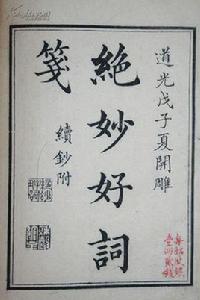 道光戊子夏開雕
絕妙好詞
箋
續鈔附